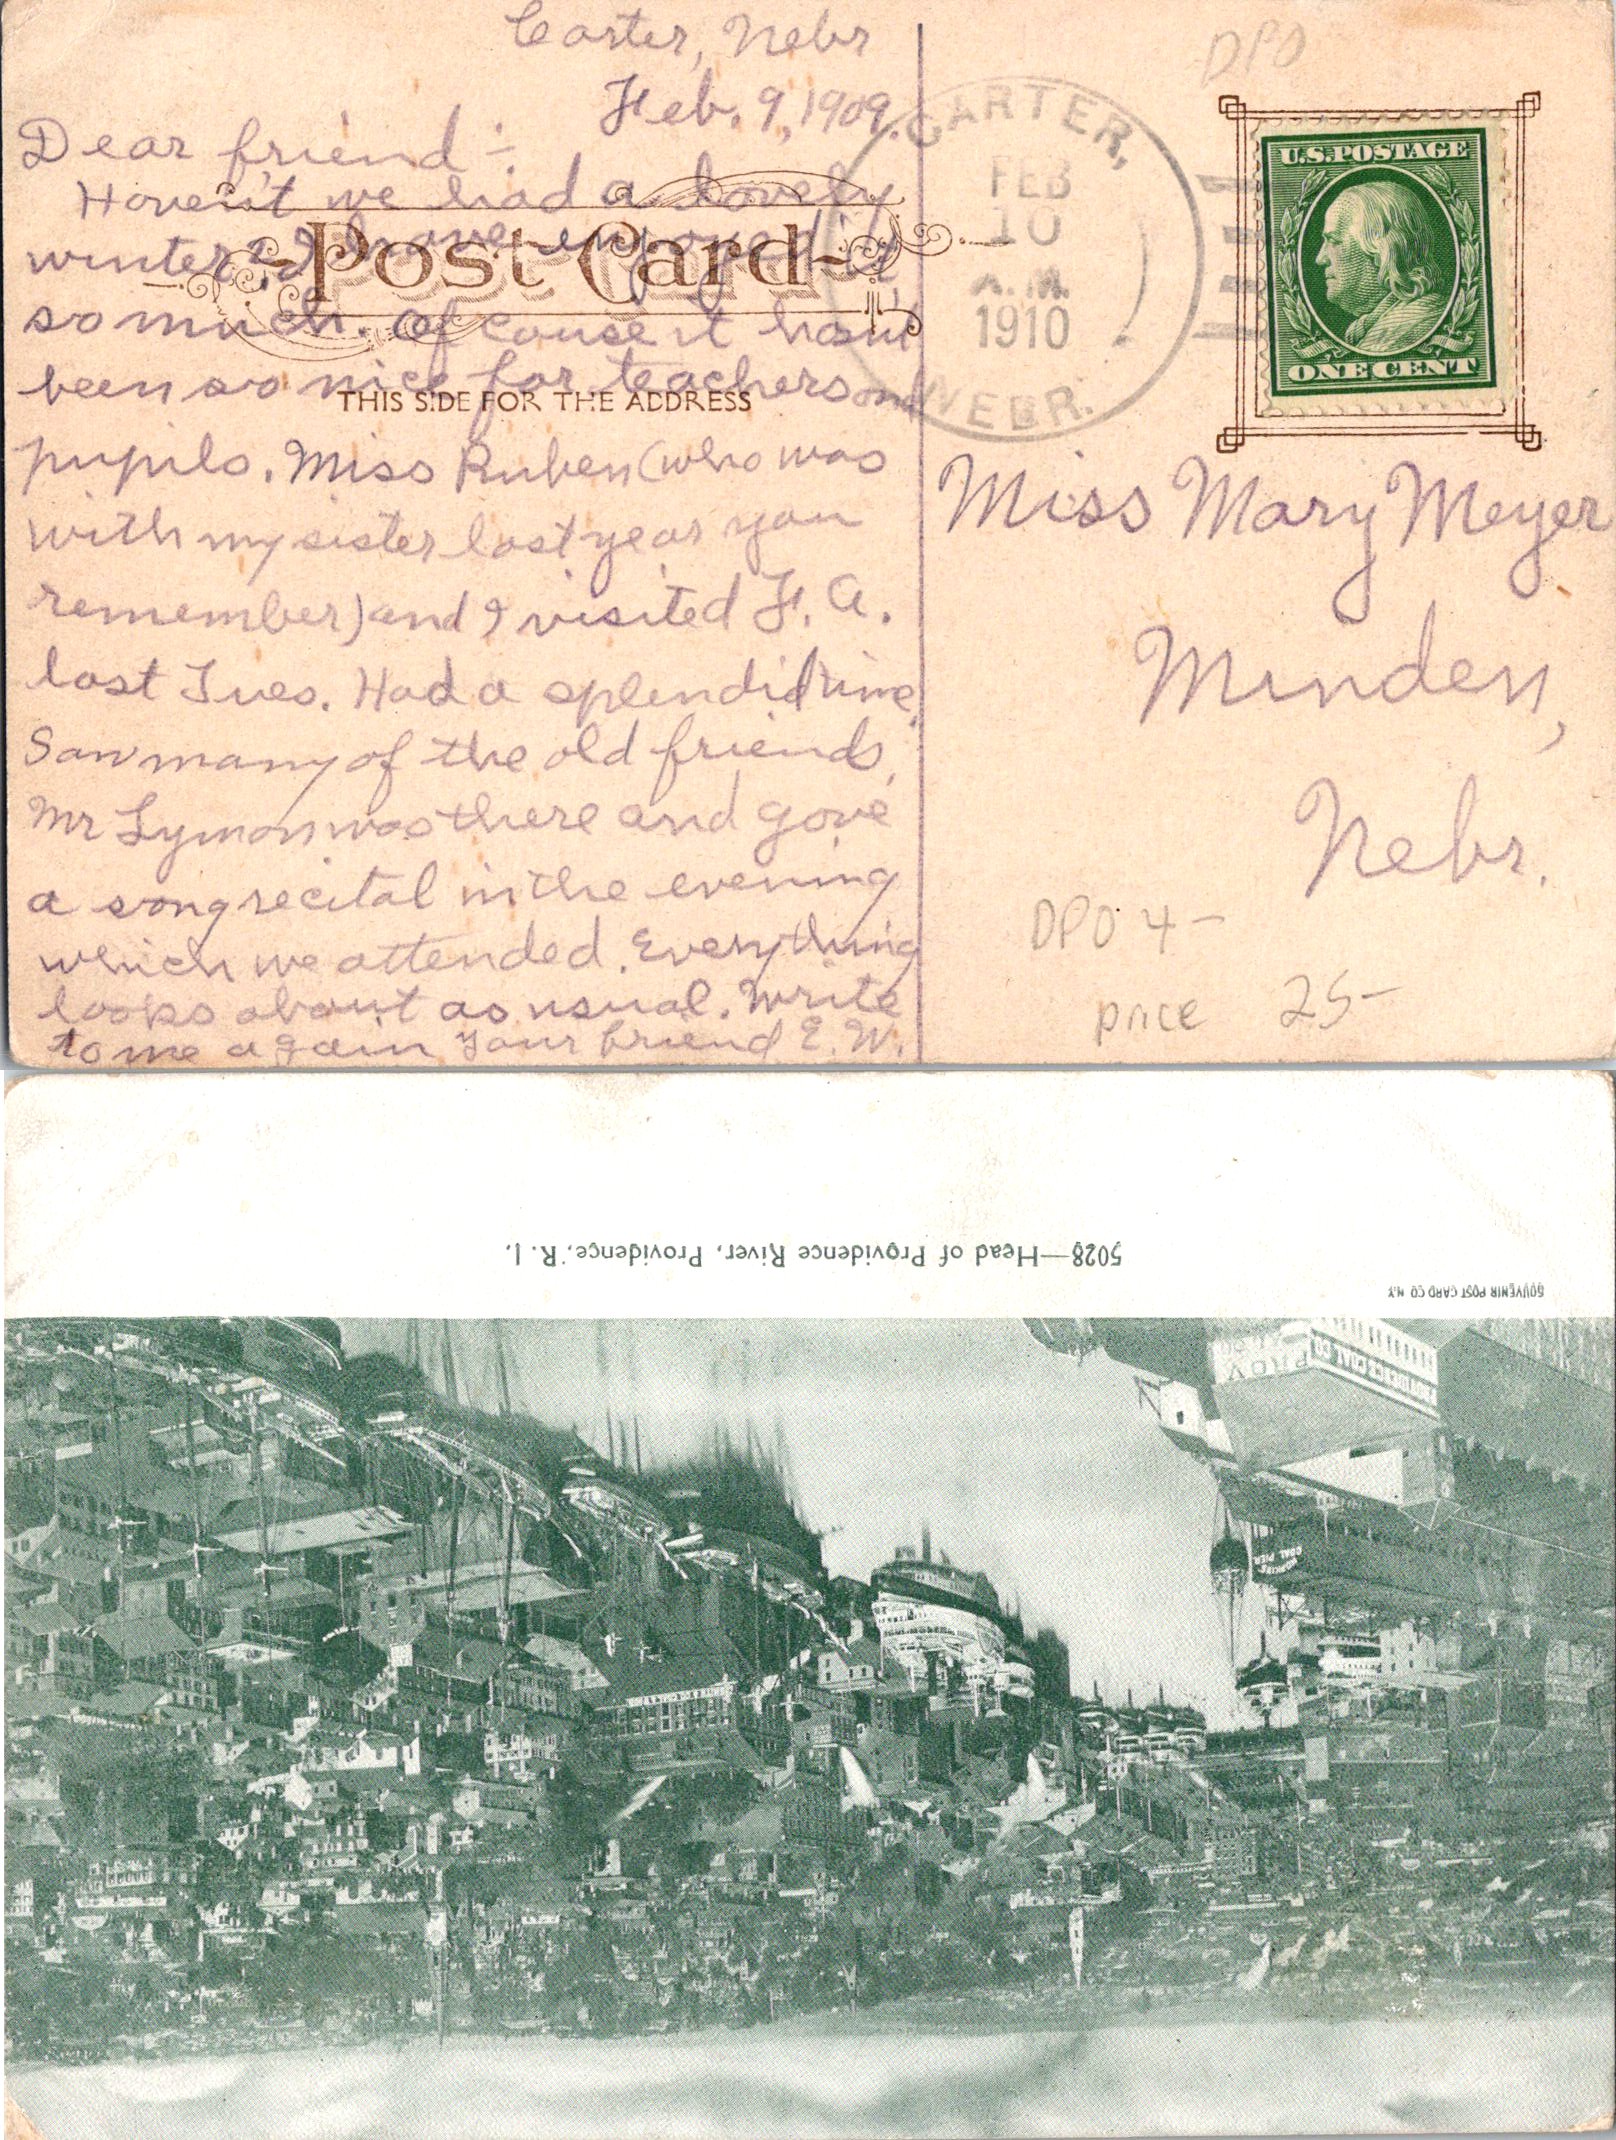 Carter, Nebr
Feb. 9, 1909.
Dear friend :-
Haven't we had a lovely
winter? I have enjoyed it
so much. Of couse it hasn't
been so nice for teachers and
pupils. Miss Ruben (who was
with my sister last year you
remember) and I visited F. A.
last Tues. Had a splendid time.
Saw many of the old friends,
Mr Lyman was there and gave
a song recital in the evening
which we attended. Everything
looks about as usual. Write
to me again Your friend E. W.
Post Card
THIS SIDE FOR THE ADDRESS
DPO
CARTER,
FEB
10
A.M.
1910
NEBR.
U.S. POSTAGE
ONE CENT
Miss Mary Meyer
Minden,
Nebr.
DPO 4-
price 25-
5028—Head of Providence River, Providence, R. I.
SOUVENIR POST CARD CO N.Y.
PROVIDENCE COAL CO
PROV
HOPKINS
COAL PIER